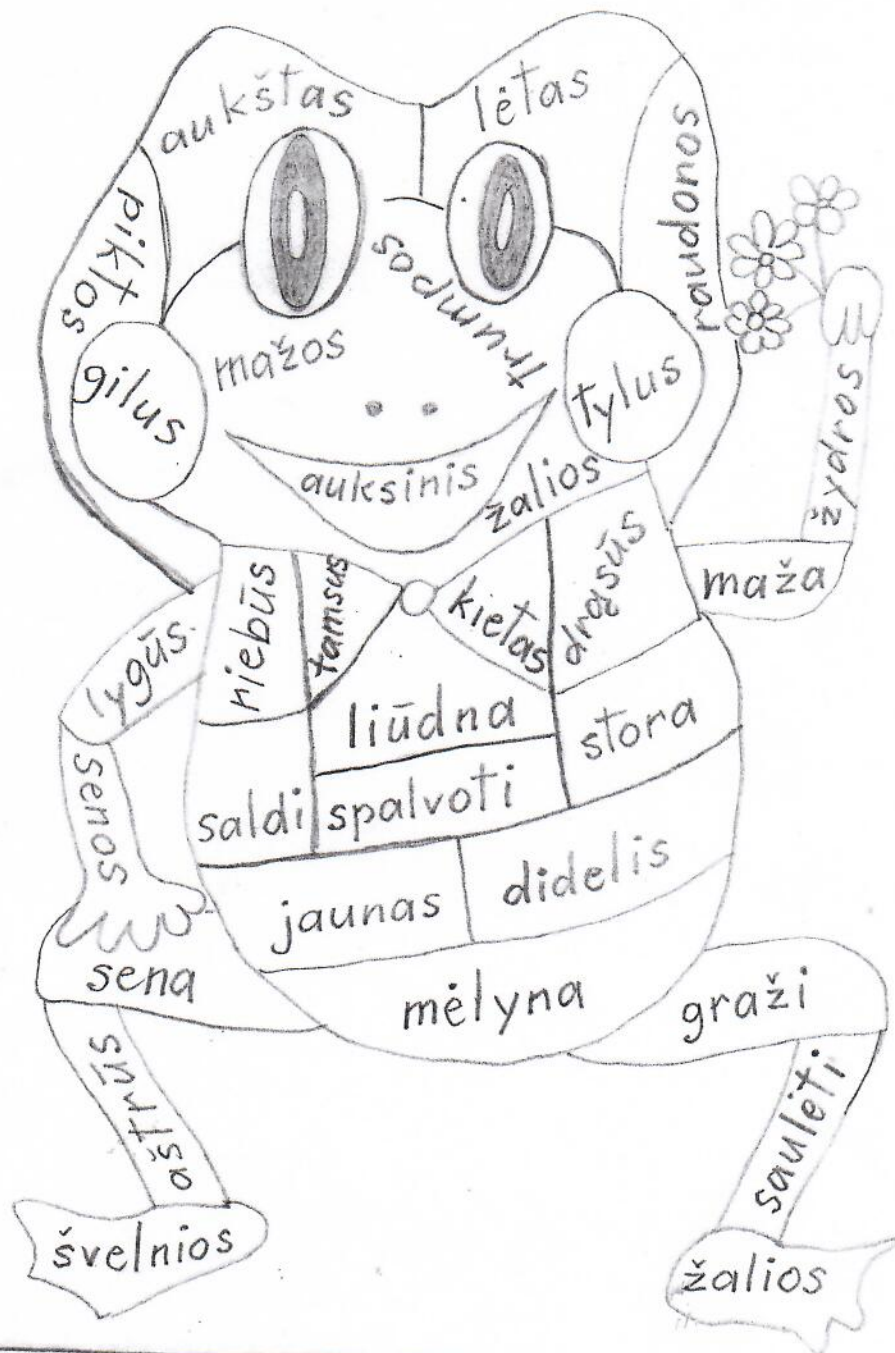 aukštas
lėtas
piktos
raudonos
trumpos
mažos
gilus
tylus
žydros
auksinis
žalios
maža
riebūs
tamsus
kietas
drąsūs
lygūs
liūdna
stora
senos
saldi
spalvoti
jaunas
didelis
sena
mėlyna
graži
aštrūs
saulėti
švelnios
žalios